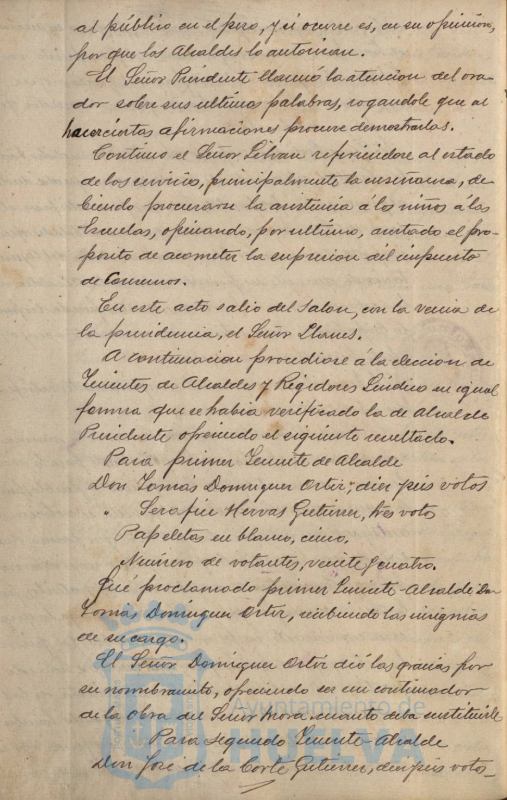 al público en el peso, y si ocurre es, en su opinión,
por que los Alcaldes lo autorizan.
El Señor Presidente llamó la atencion del ora-
dor sobre sus ultimas palabras, rogandole que al
hacer ciertas afirmaciones procure demostrarlas.
Continuo el Señor refiriendose al estado
de los servicios, principalmente la enseñanza, de-
biendo procurarse la asistencia á los niños á las
Escuelas, opinando, por ultimo, el pro-
posito de acometer la supresion del impuesto
de Consumos.
En este acto salio del Salon, con la venia de
la presidencia, el Señor Llanes.
A continuacion procediose á la eleccion de
Tenientes de Alcaldes y Regidores Sindico en igual
forma que se habia verificado la de Alcalde
Presidente ofreciendo el siguiente resultado.
Para primer Teniente de Alcalde
Don Tomás Dominguez Ortiz, diez y seis votos
" Serafin Hervas Gutierrez, tres voto
Papeletas en blanco, cinco.
Número de votantes, veinte y cuatro.
Fué proclamado primer Teniente-Alcalde Don
Tomás Dominguez Ortiz, recibiendo las insignias
de su cargo.
El Señor Dominguez Ortiz dió las gracias por
su nombramiento, ofreciendo ser un continuador
de la obra del Señor Mora cuanto deba sustituirle
Para segundo Teniente-Alcalde
Don José de la Corte Gutierrez, diez y seis votos
Ayuntamiento de
HUELVA